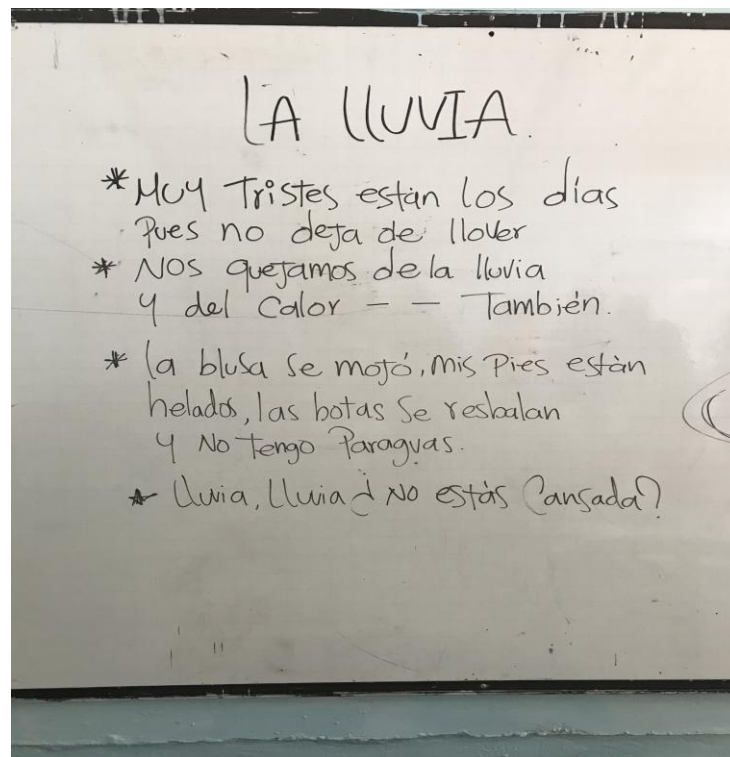 LA LLUVIA.
* MUY Tristes están los días
Pues no deja de llover
* NOS quejamos de la lluvia
y del Calor - - También.
* la blusa se mojó, mis Pies están
helados, las botas se resbalan
y NO Tengo Paraguas.
* Lluvia, Lluvia ¿ NO estás Cansada?